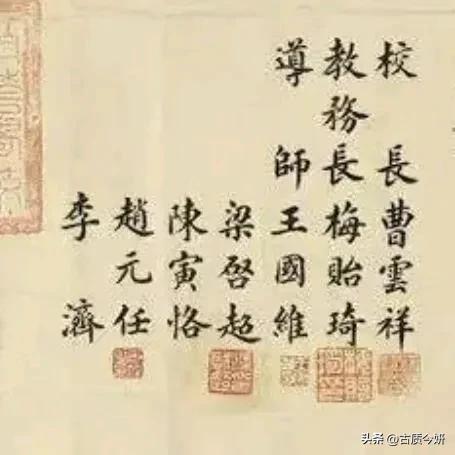 校長曹雲祥
教務長梅貽琦
導師王國維
梁啓超
陳寅恪
趙元任
李濟
头条 @古质今妍